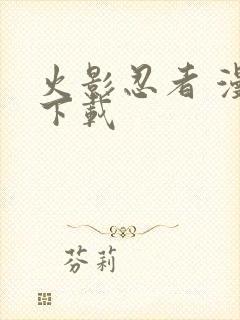 火影忍者 漫
下載
芬莉